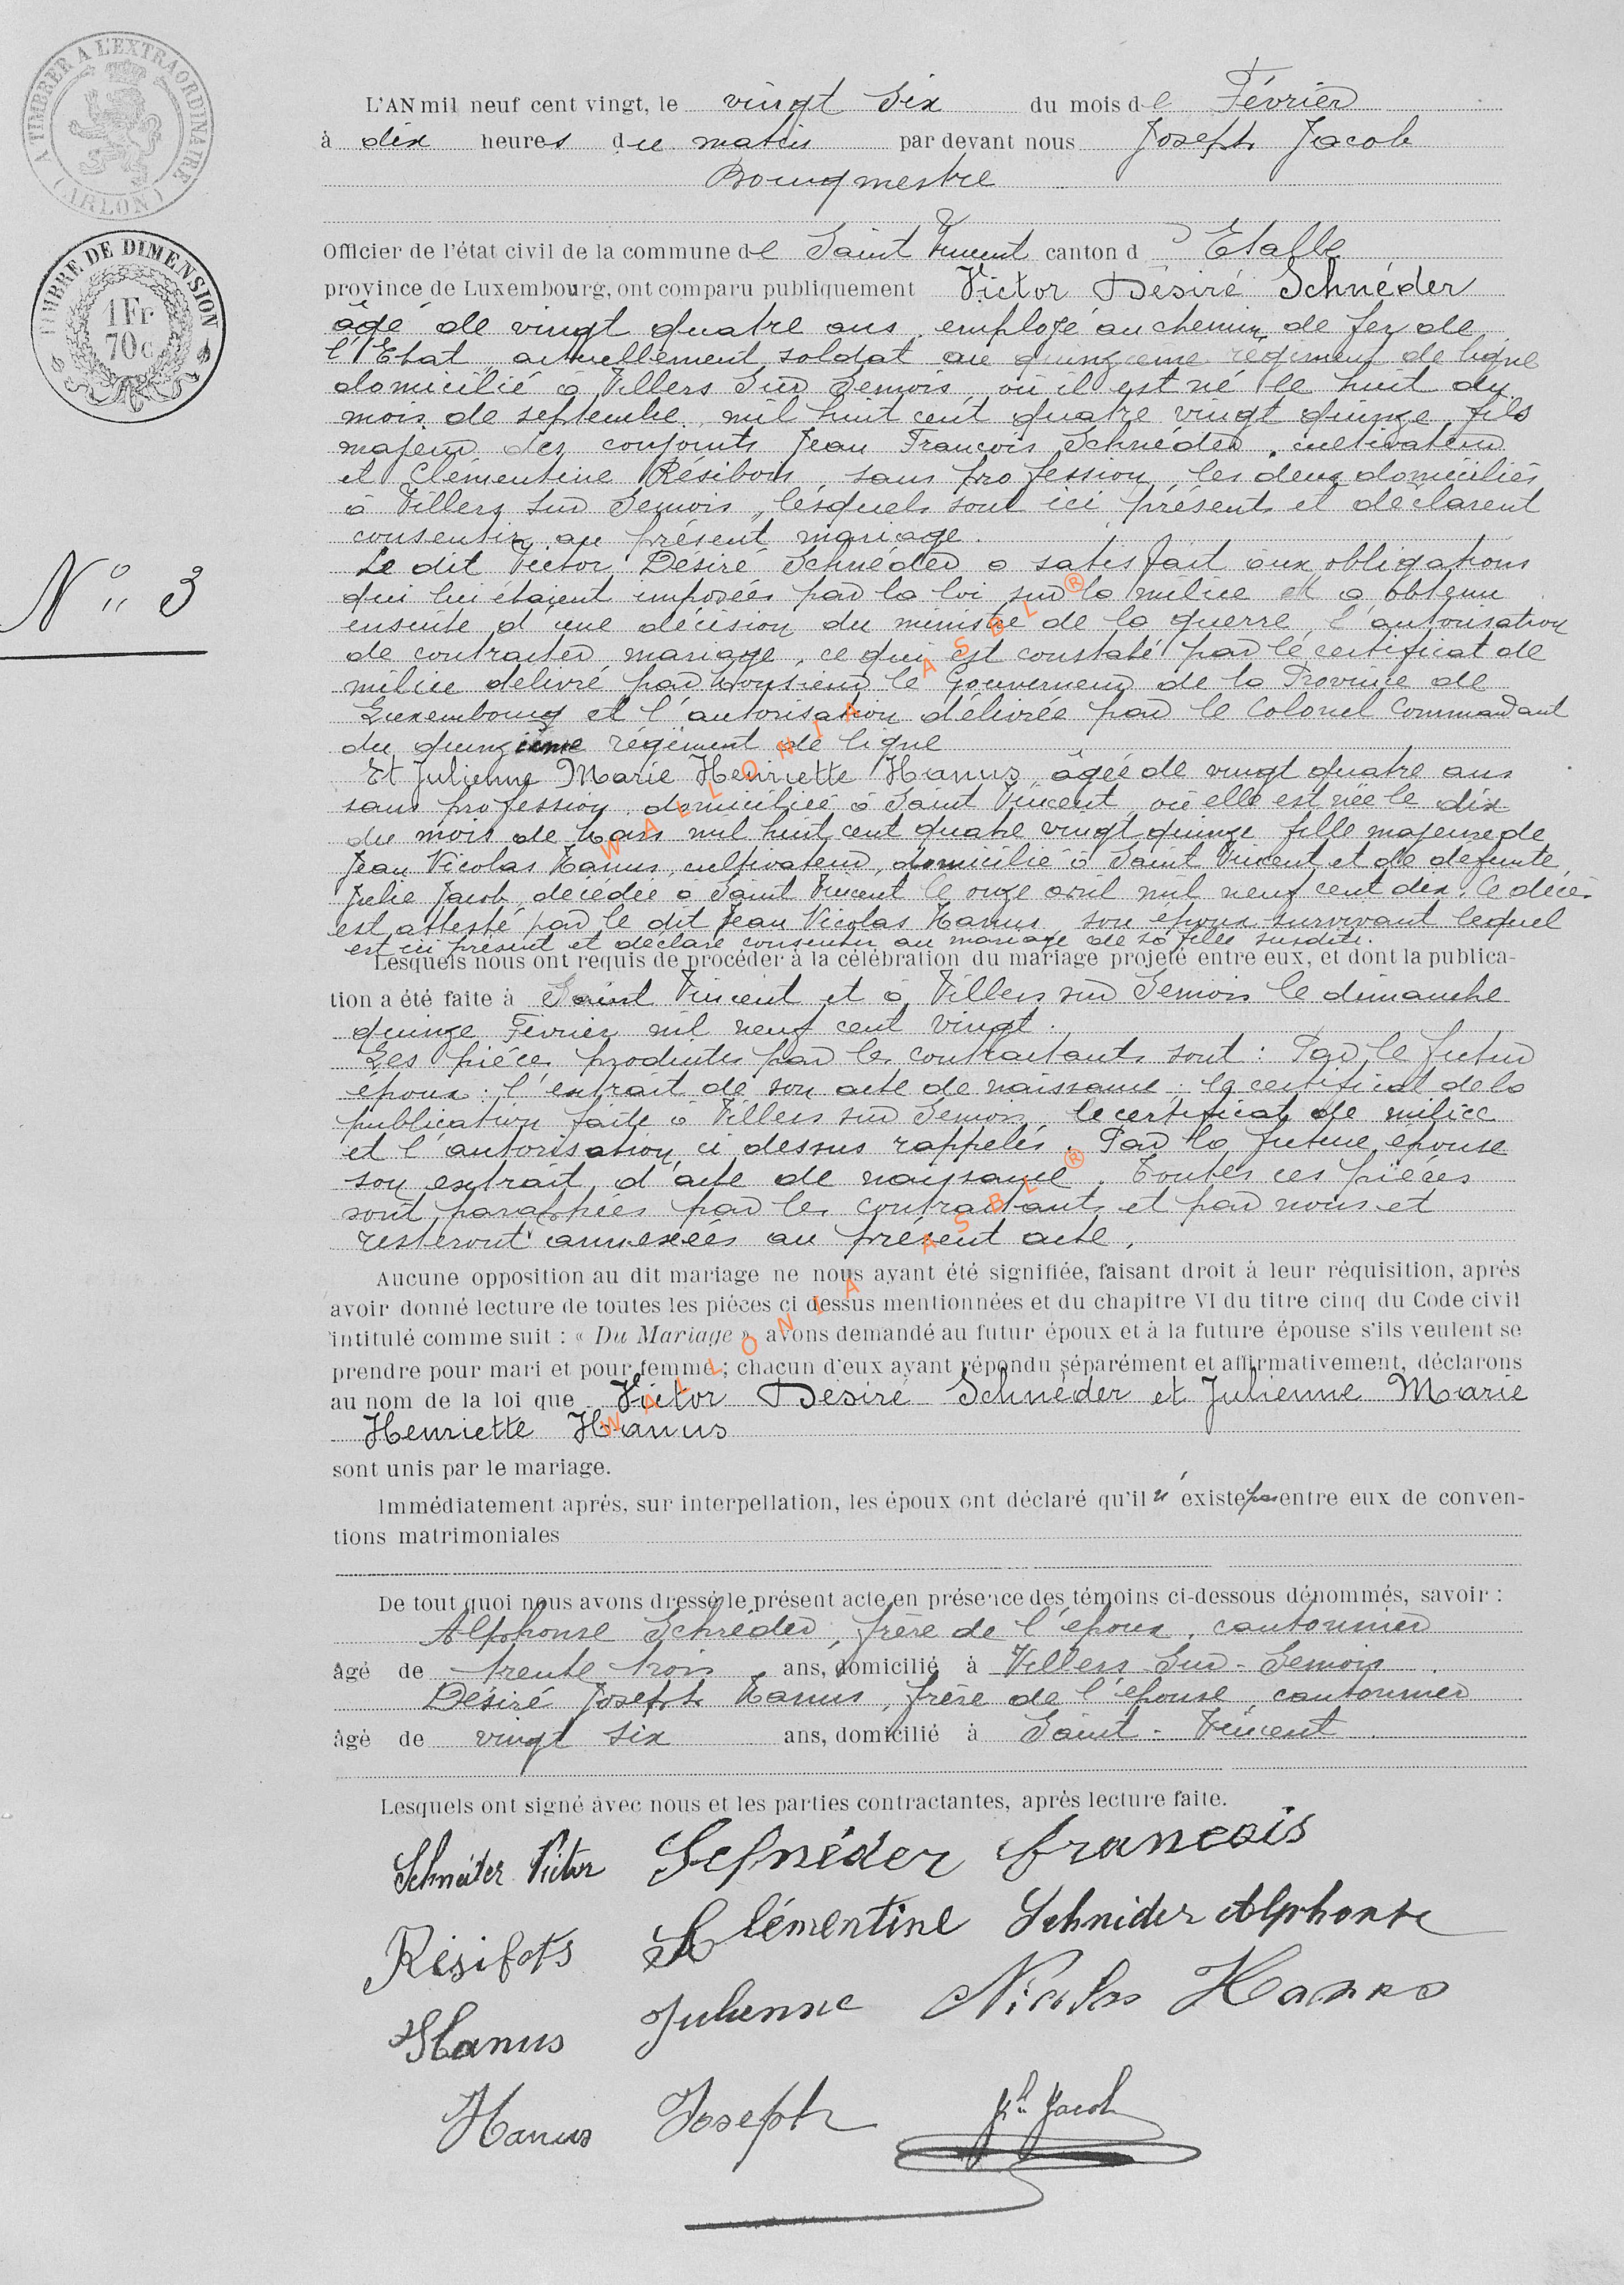 A TIMBRER A L'EXTRAORDINAIRE
(ARLON)
TIMBRE DE DIMENSION
1 Fr
70 c
N° 3
L'AN mil neuf cent vingt, le vingt six du mois de Février
à dix heures du matin par devant nous Joseph Jacob
Bourgmestre
Officier de l'état civil de la commune de Saint Vincent canton d'Etalle
province de Luxembourg, ont comparu publiquement Victor Désiré Schnéder
âgé de vingt quatre ans, employé au chemin de fer de
l'Etat, actuellement soldat au quinzième régiment de ligne
domicilié à Villers sur Semois, où il est né le huit du
mois de septembre mil huit cent quatre vingt quinze fils
majeur des conjoints Jean François Schnéder, cultivateur
et Clémentine Résibois, sans profession, les deux domiciliés
à Villers sur Semois, lesquels sont ici présents et déclarent
consentir au présent mariage.
Le dit Victor Désiré Schnéder a satisfait aux obligations
qui lui étaient imposées par la loi sur la milice et a obtenu
ensuite d'une décision du ministre de la guerre, l'autorisation
de contracter mariage, ce qui est constaté par le certificat de
milice délivré par Monsieur le Gouverneur de la Province de
Luxembourg et l'autorisation délivrée par le Colonel Commandant
du quinzième régiment de ligne
Et Julienne Marie Henriette Hanus, âgée de vingt quatre ans
sans profession, domiciliée à Saint Vincent, où elle est née le dix
du mois de Mars mil huit cent quatre vingt quinze fille majeure de
Jean Nicolas Hanus, cultivateur, domicilié à Saint Vincent et de défunte
Julie Jacob, décédée à Saint Vincent le onze avril mil neuf cent dix. Ce décès
est attesté par le dit Jean Nicolas Hanus, son époux survivant lequel
est ici présent et déclare consentir au mariage de sa fille susdite.
Lesquels nous ont requis de procéder à la célébration du mariage projeté entre eux, et dont la publica-
tion a été faite à Saint Vincent et à Villers sur Semois le dimanche
quinze Février mil neuf cent vingt.
Les pièces produites par les contractants sont : Par le futur
époux : l'extrait de son acte de naissance, le certificat de la
publication faite à Villers sur Semois, le certificat de milice
et l'autorisation ci dessus rappelés. Par la future épouse
son extrait d'acte de naissance. Toutes ces pièces
sont paraphées par les contractants et par nous et
resteront annexées au présent acte.
Aucune opposition au dit mariage ne nous ayant été signifiée, faisant droit à leur réquisition, après
avoir donné lecture de toutes les pièces ci dessus mentionnées et du chapitre VI du titre cinq du Code civil
intitulé comme suit : « Du Mariage » avons demandé au futur époux et à la future épouse s'ils veulent se
prendre pour mari et pour femme ; chacun d'eux ayant répondu séparément et affirmativement, déclarons
au nom de la loi que Victor Désiré Schnéder et Julienne Marie
Henriette Hanus
sont unis par le mariage.
Immédiatement après, sur interpellation, les époux ont déclaré qu'il n'existe pas entre eux de conven-
tions matrimoniales
De tout quoi nous avons dressé le présent acte en présence des témoins ci-dessous dénommés, savoir :
Alphonse Schréder, frère de l'époux, cantonnier
âgé de trente trois ans, domicilié à Villers Sur-Semois
Désiré Joseph Hanus, frère de l'épouse, cantonnier
âgé de vingt six ans, domicilié à Saint-Vincent
Lesquels ont signé avec nous et les parties contractantes, après lecture faite.
Schneider Victor Schnéder François
Résibois Clémentine Schnider Alphonse
Hanus Julienne Nicolas Hanus
Hanus Joseph Jh Jacob
WALLONIA ASBL ®
WALLONIA ASBL ®